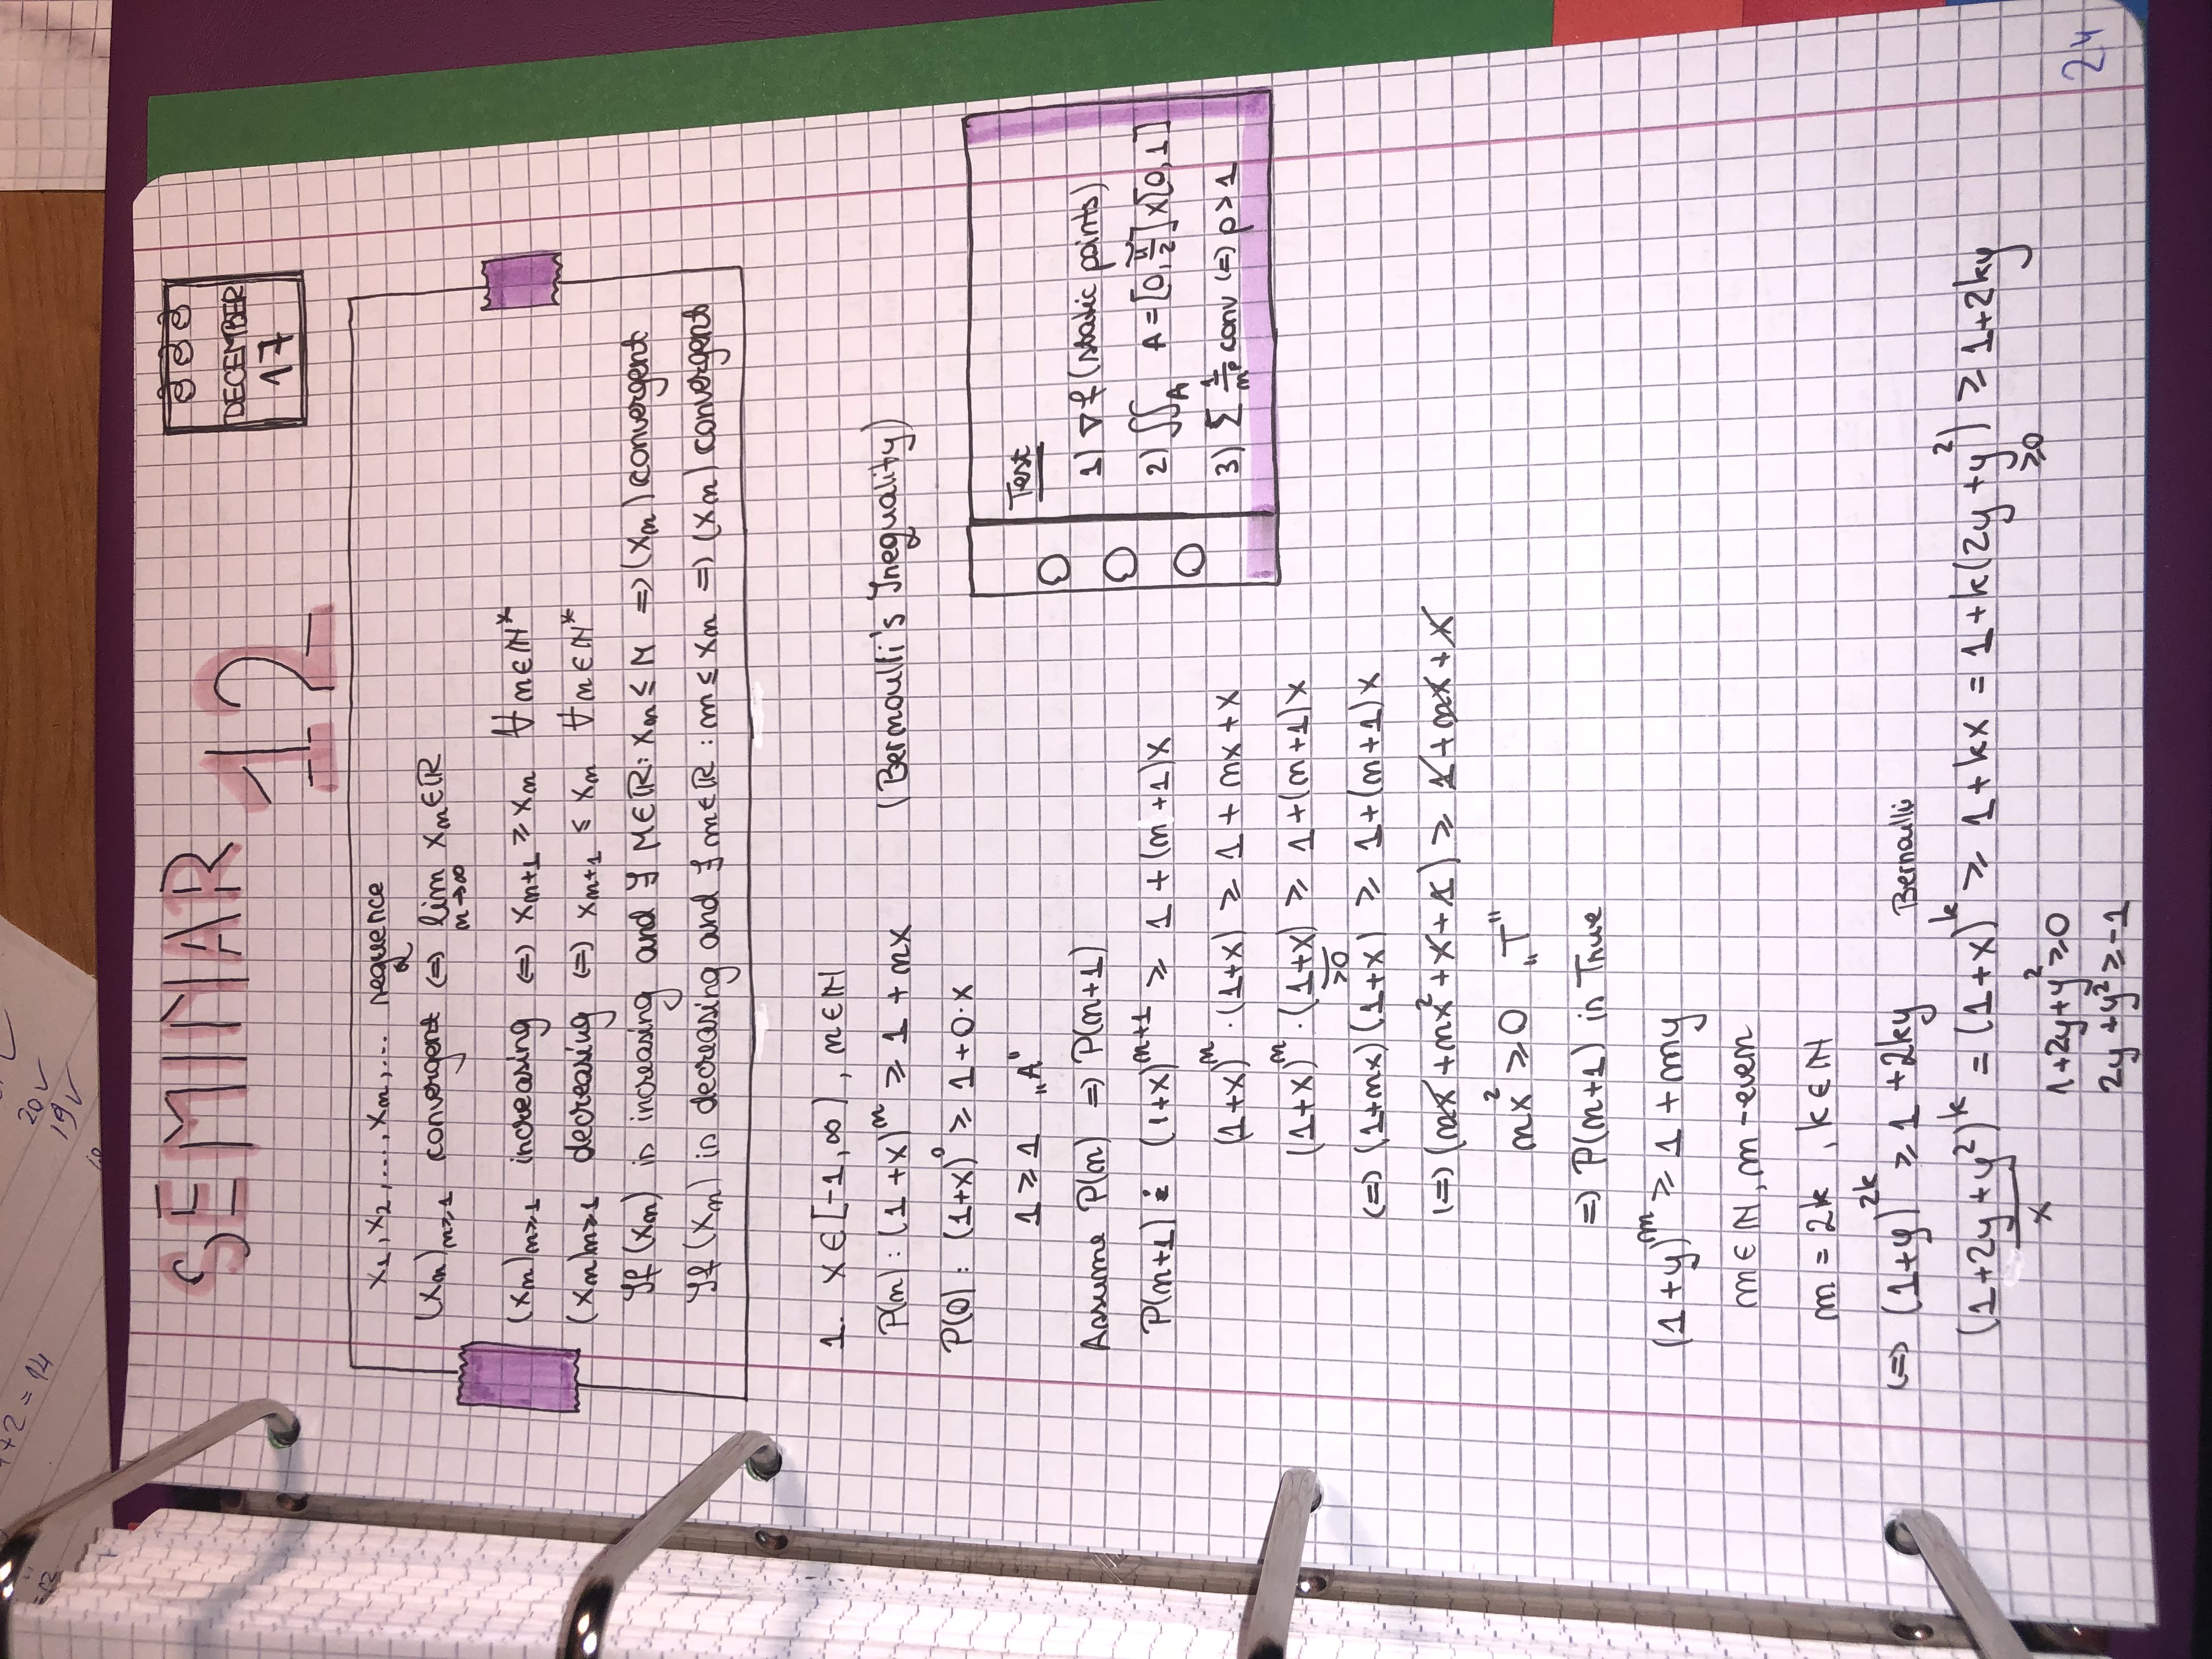 1+2 = 14
20 ✓
19 ✓
SEMINAR 12
DECEMBER
17
x₁, x₂, ..., xₙ, ... sequence
(xₙ)ₙ≥₁ convergent ⇔ lim xₙ ∈ ℝ
n→∞
(xₙ)ₙ≥₁ increasing ⇔ xₙ₊₁ ≥ xₙ ∀ n ∈ ℕ*
(xₙ)ₙ≥₁ decreasing ⇔ xₙ₊₁ ≤ xₙ ∀ n ∈ ℕ*
If (xₙ) is increasing and ∃ M ∈ ℝ: xₙ ≤ M ⇒ (xₙ) convergent
If (xₙ) is decreasing and ∃ m ∈ ℝ : m ≤ xₙ ⇒ (xₙ) convergent
1. x ∈ [-1, ∞), n ∈ ℕ
P(n): (1+x)ⁿ ≥ 1 + nx (Bernoulli's Inequality)
P(0): (1+x)⁰ ≥ 1 + 0·x
1 ≥ 1 „A"
Assume P(n) ⇒ P(n+1)
P(n+1): (1+x)ⁿ⁺¹ ≥ 1 + (n+1)x
(1+x)ⁿ · (1+x) ≥ 1 + nx + x
(1+x)ⁿ · (1+x) ≥ 1 + (n+1)x
≥0
⇔ (1+nx)(1+x) ≥ 1 + (n+1)x
⇔ (nx + nx² + x + 1) ≥ 1 + nx + x
nx² ≥ 0 „T"
⇒ P(n+1) is True
Test
1) ∇f (static points)
2) ∬_A A = [0, π/2] x [0, 1]
3) Σ 1/nᵖ conv ⇔ p > 1
(1+y)ᵐ ≥ 1 + my
m ∈ ℕ, m - even
m = 2k, k ∈ ℕ
⇔ (1+y)²ᵏ ≥ 1 + 2ky Bernoulli
(1+2y+y²)ᵏ = (1+x)ᵏ ≥ 1+kx = 1+k(2y+y²) ≥ 1+2ky
x ≥0
1+2y+y² ≥ 0
2y+y² ≥ -1
24